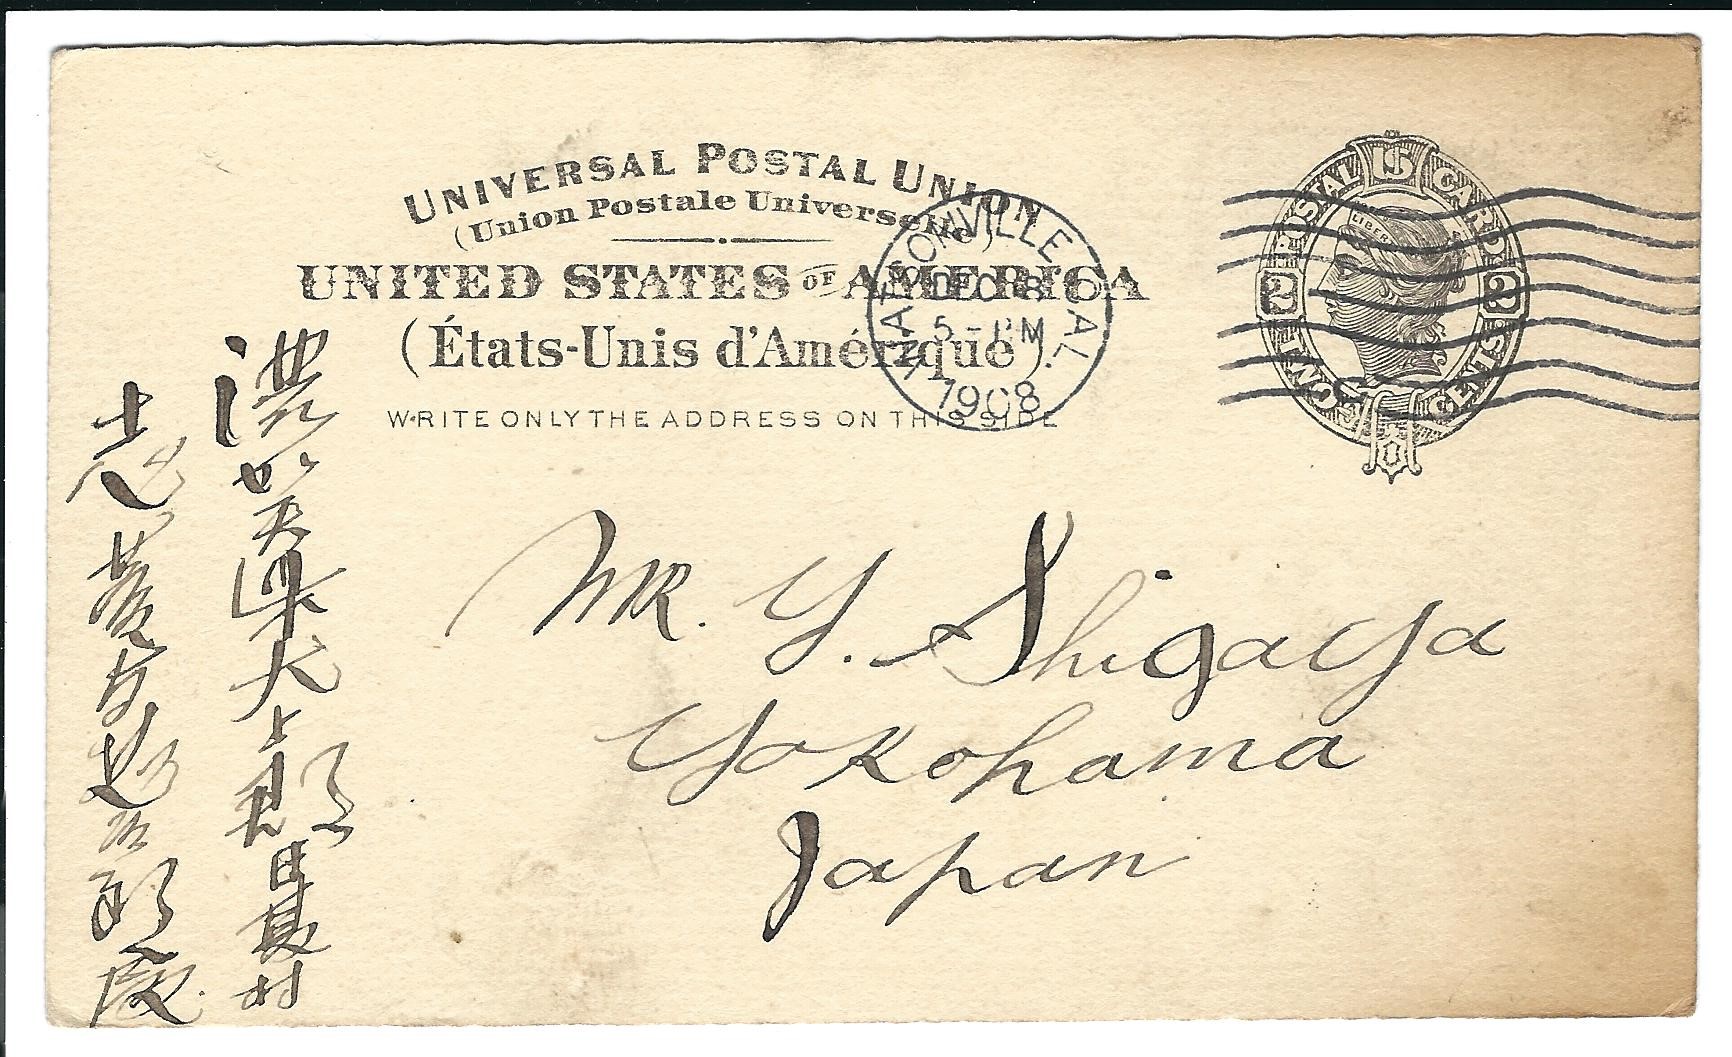 UNIVERSAL POSTAL UNION
(Union Postale Universelle)
UNITED STATES OF AMERICA
(États-Unis d'Amérique).
WRITE ONLY THE ADDRESS ON THIS SIDE
WATSONVILLE CAL.
DEC 18
5 - PM
1908
POSTAL US CARD
2 2
TWO CENTS
LIBERTY
MR. Y. Shigaya
Yokohama
Japan
郎殿